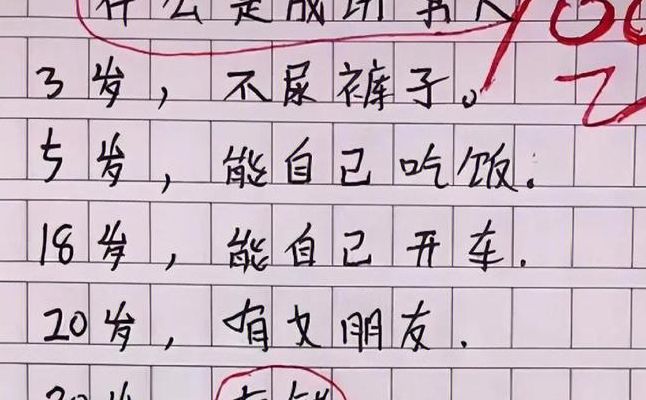 什么是成功男人 100
3岁，不尿裤子。
5岁，能自己吃饭.
18岁，能自己开车.
20岁，有女朋友.
30岁，有钱